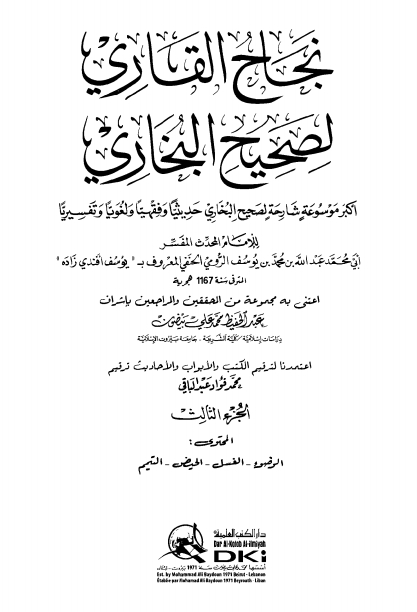 نجاح القاري
لصحيح البخاري
أكبر موسوعة شارحة لصحيح البخاري حديثيًا وفقهيًا ولغويًا وتفسيريًا
للإمام المحدث المفسر
أبي محمد عبد الله بن محمد بن يوسف الرومي الحنفي المعروف بـ " يوسف أفندي زاده "
المتوفى سنة 1167 هجرية
اعتنى به مجموعة من المحققين والمراجعين بإشراف
عبد الحفيظ محمد علي بيضون
دراسات إسلامية، كلية الشريعة، جامعة بيروت الإسلامية
اعتمدنا لترقيم الكتب والأبواب والأحاديث ترقيم
محمد فؤاد عبد الباقي
الجزء الثالث
المحتوى:
الوضوء - الغسل - الحيض - التيمم
دار الكتب العلمية
Dar Al-Kotob Al-ilmiyah
DKi
أسسها محمد علي بيضون سنة 1971 بيروت - لبنان
Est. by Mohammad Ali Baydoun 1971 Beirut - Lebanon
Établie par Mohamad Ali Baydoun 1971 Beyrouth - Liban